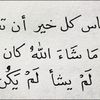 اس كل خير أن ت
مَا شَاءَ اللهُ كان
لَمْ يشأ لَمْ يَكُن